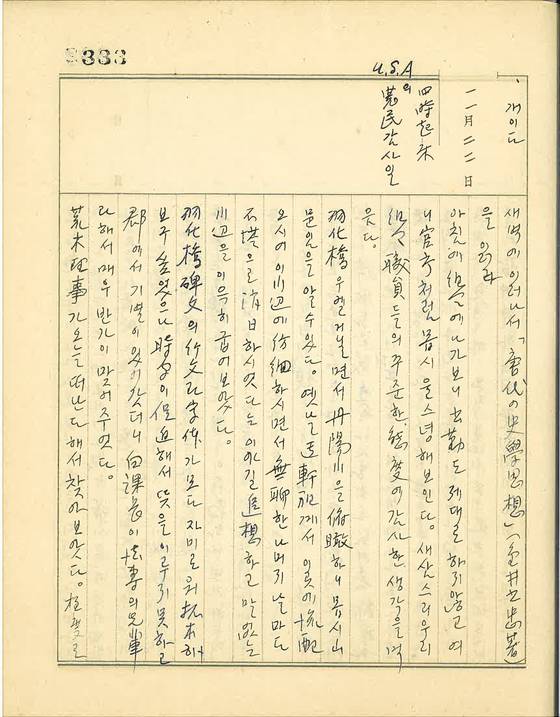 333
개이다
一一月 二二日
U.S.A의
四時起床
農民감사일
새벽에 이러나서「唐代의 史學思想」(金井之忠著)
을 읽다
아침에 組合에 나가보니 出勤도 제대로 하지 않고 여
니 官衆처럼 몹시 을스녕해 보인다. 새삼스러 우리
組合 職員들의 꾸준한 態度에 감사한 생각을 먹
었다.
羽化橋 우헬 거닐면서 丹陽川을 俯瞰하니 몹시 산
문있음을 알 수 있다. 옛날 逸軒祖께서 이곳에 流配
오시어 이 川辺에 彷徊하시면서 無聊한 나머지 날마다
石築으로 消日하시엇다는 이야길 追想하고 말없는
川辺을 이윽히 굽어보았다.
羽化橋碑文의 行文과 書体가 모다 자미로워 拓本하
보구 싶었으나 時간이 促迫해서 뜻을 이루지 못하고
郡에서 기별이 있어 갓더니 白課長이 洪李의 兄輩
라 해서 매우 반가이 맞어 주었다.
荒木理事가 오늘 떠난다 해서 찾아보았다.